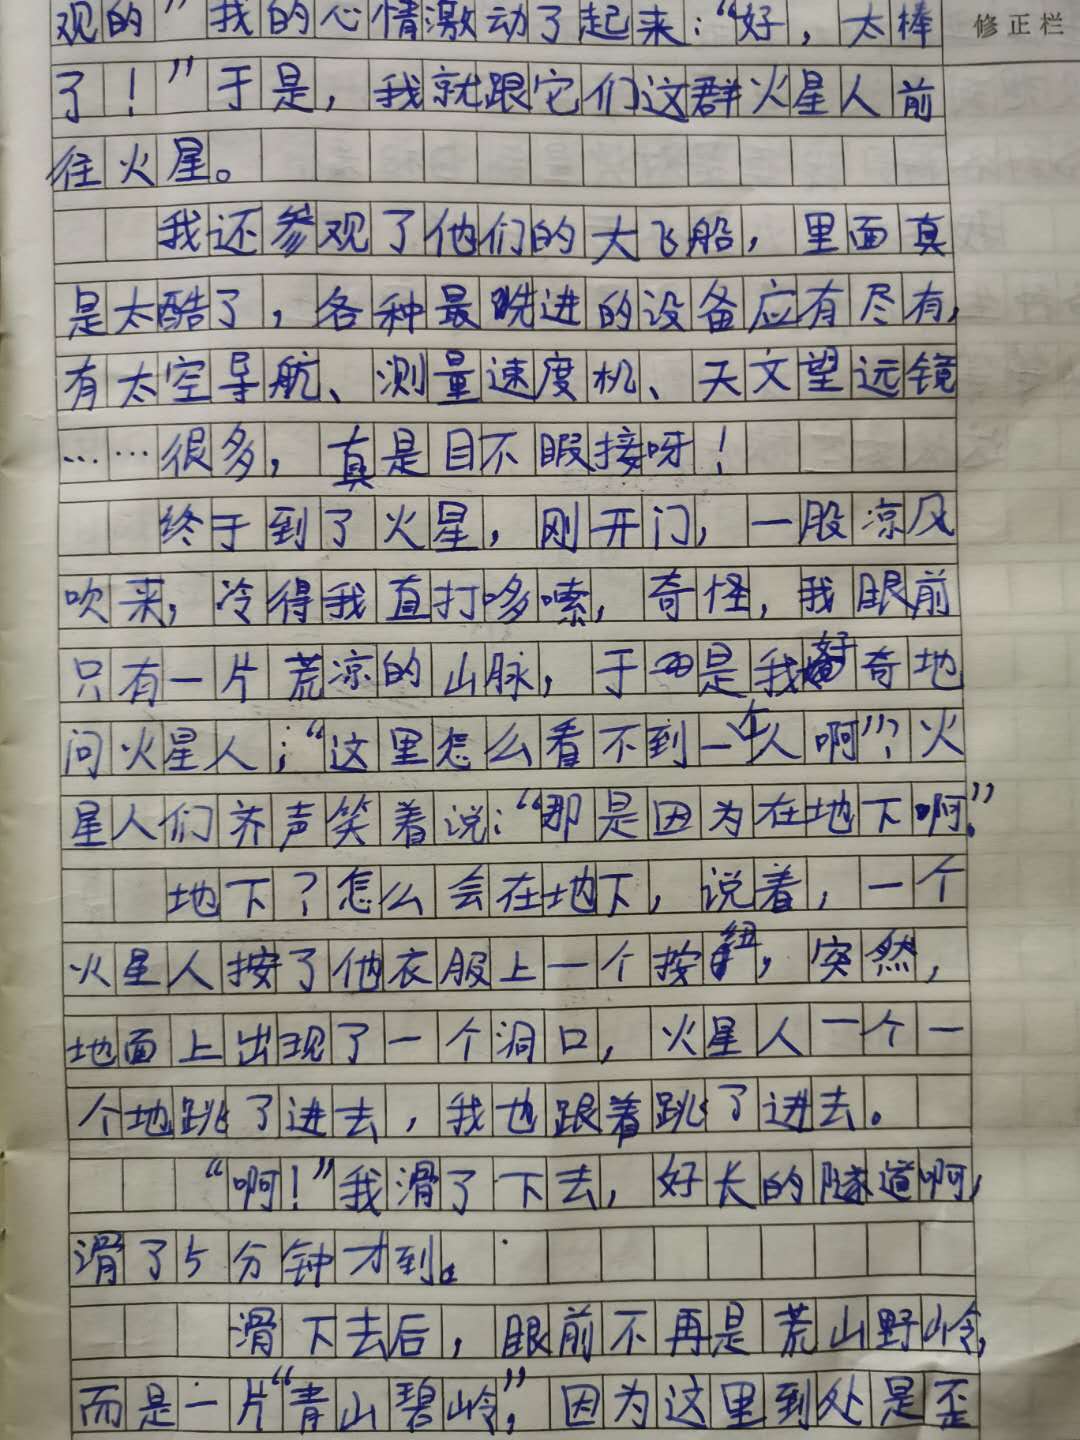 观的”我的心情激动了起来：“好，太棒
修正栏
了！”于是，我就跟它们这群火星人前
往火星。
我还参观了他们的大飞船，里面真
是太酷了，各种最先进的设备应有尽有，
有太空导航、测量速度机、天文望远镜
……很多，真是目不暇接呀！
终于到了火星，刚开门，一股凉风
吹来，冷得我直打哆嗦，奇怪，我眼前
只有一片荒凉的山脉，于是我好奇地
问火星人；“这里怎么看不到一个人啊”？火
星人们齐声笑着说：“那是因为在地下啊。”
地下？怎么会在地下，说着，一个
火星人按了他衣服上一个按钮，突然，
地面上出现了一个洞口，火星人一个一
个地跳了进去，我也跟着跳了进去。
“啊！”我滑了下去，好长的隧道啊，
滑了5分钟才到。
滑下去后，眼前不再是荒山野岭，
而是一片“青山碧岭”，因为这里到处是歪